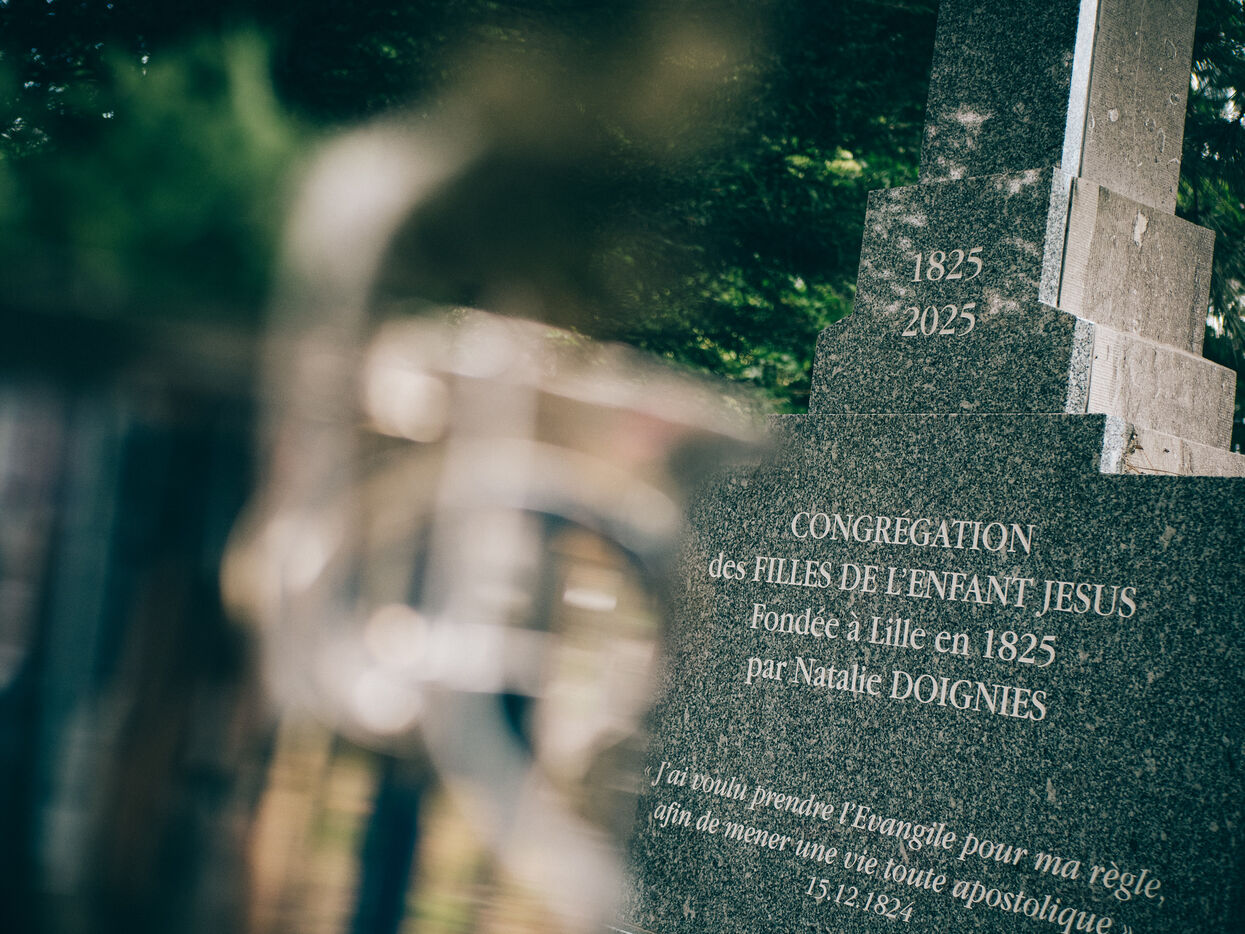 1825
2025
CONGRÉGATION
des FILLES DE L'ENFANT JESUS
Fondée à Lille en 1825
par Natalie DOIGNIES
« J'ai voulu prendre l'Evangile pour ma règle,
afin de mener une vie toute apostolique »
15.12.1824